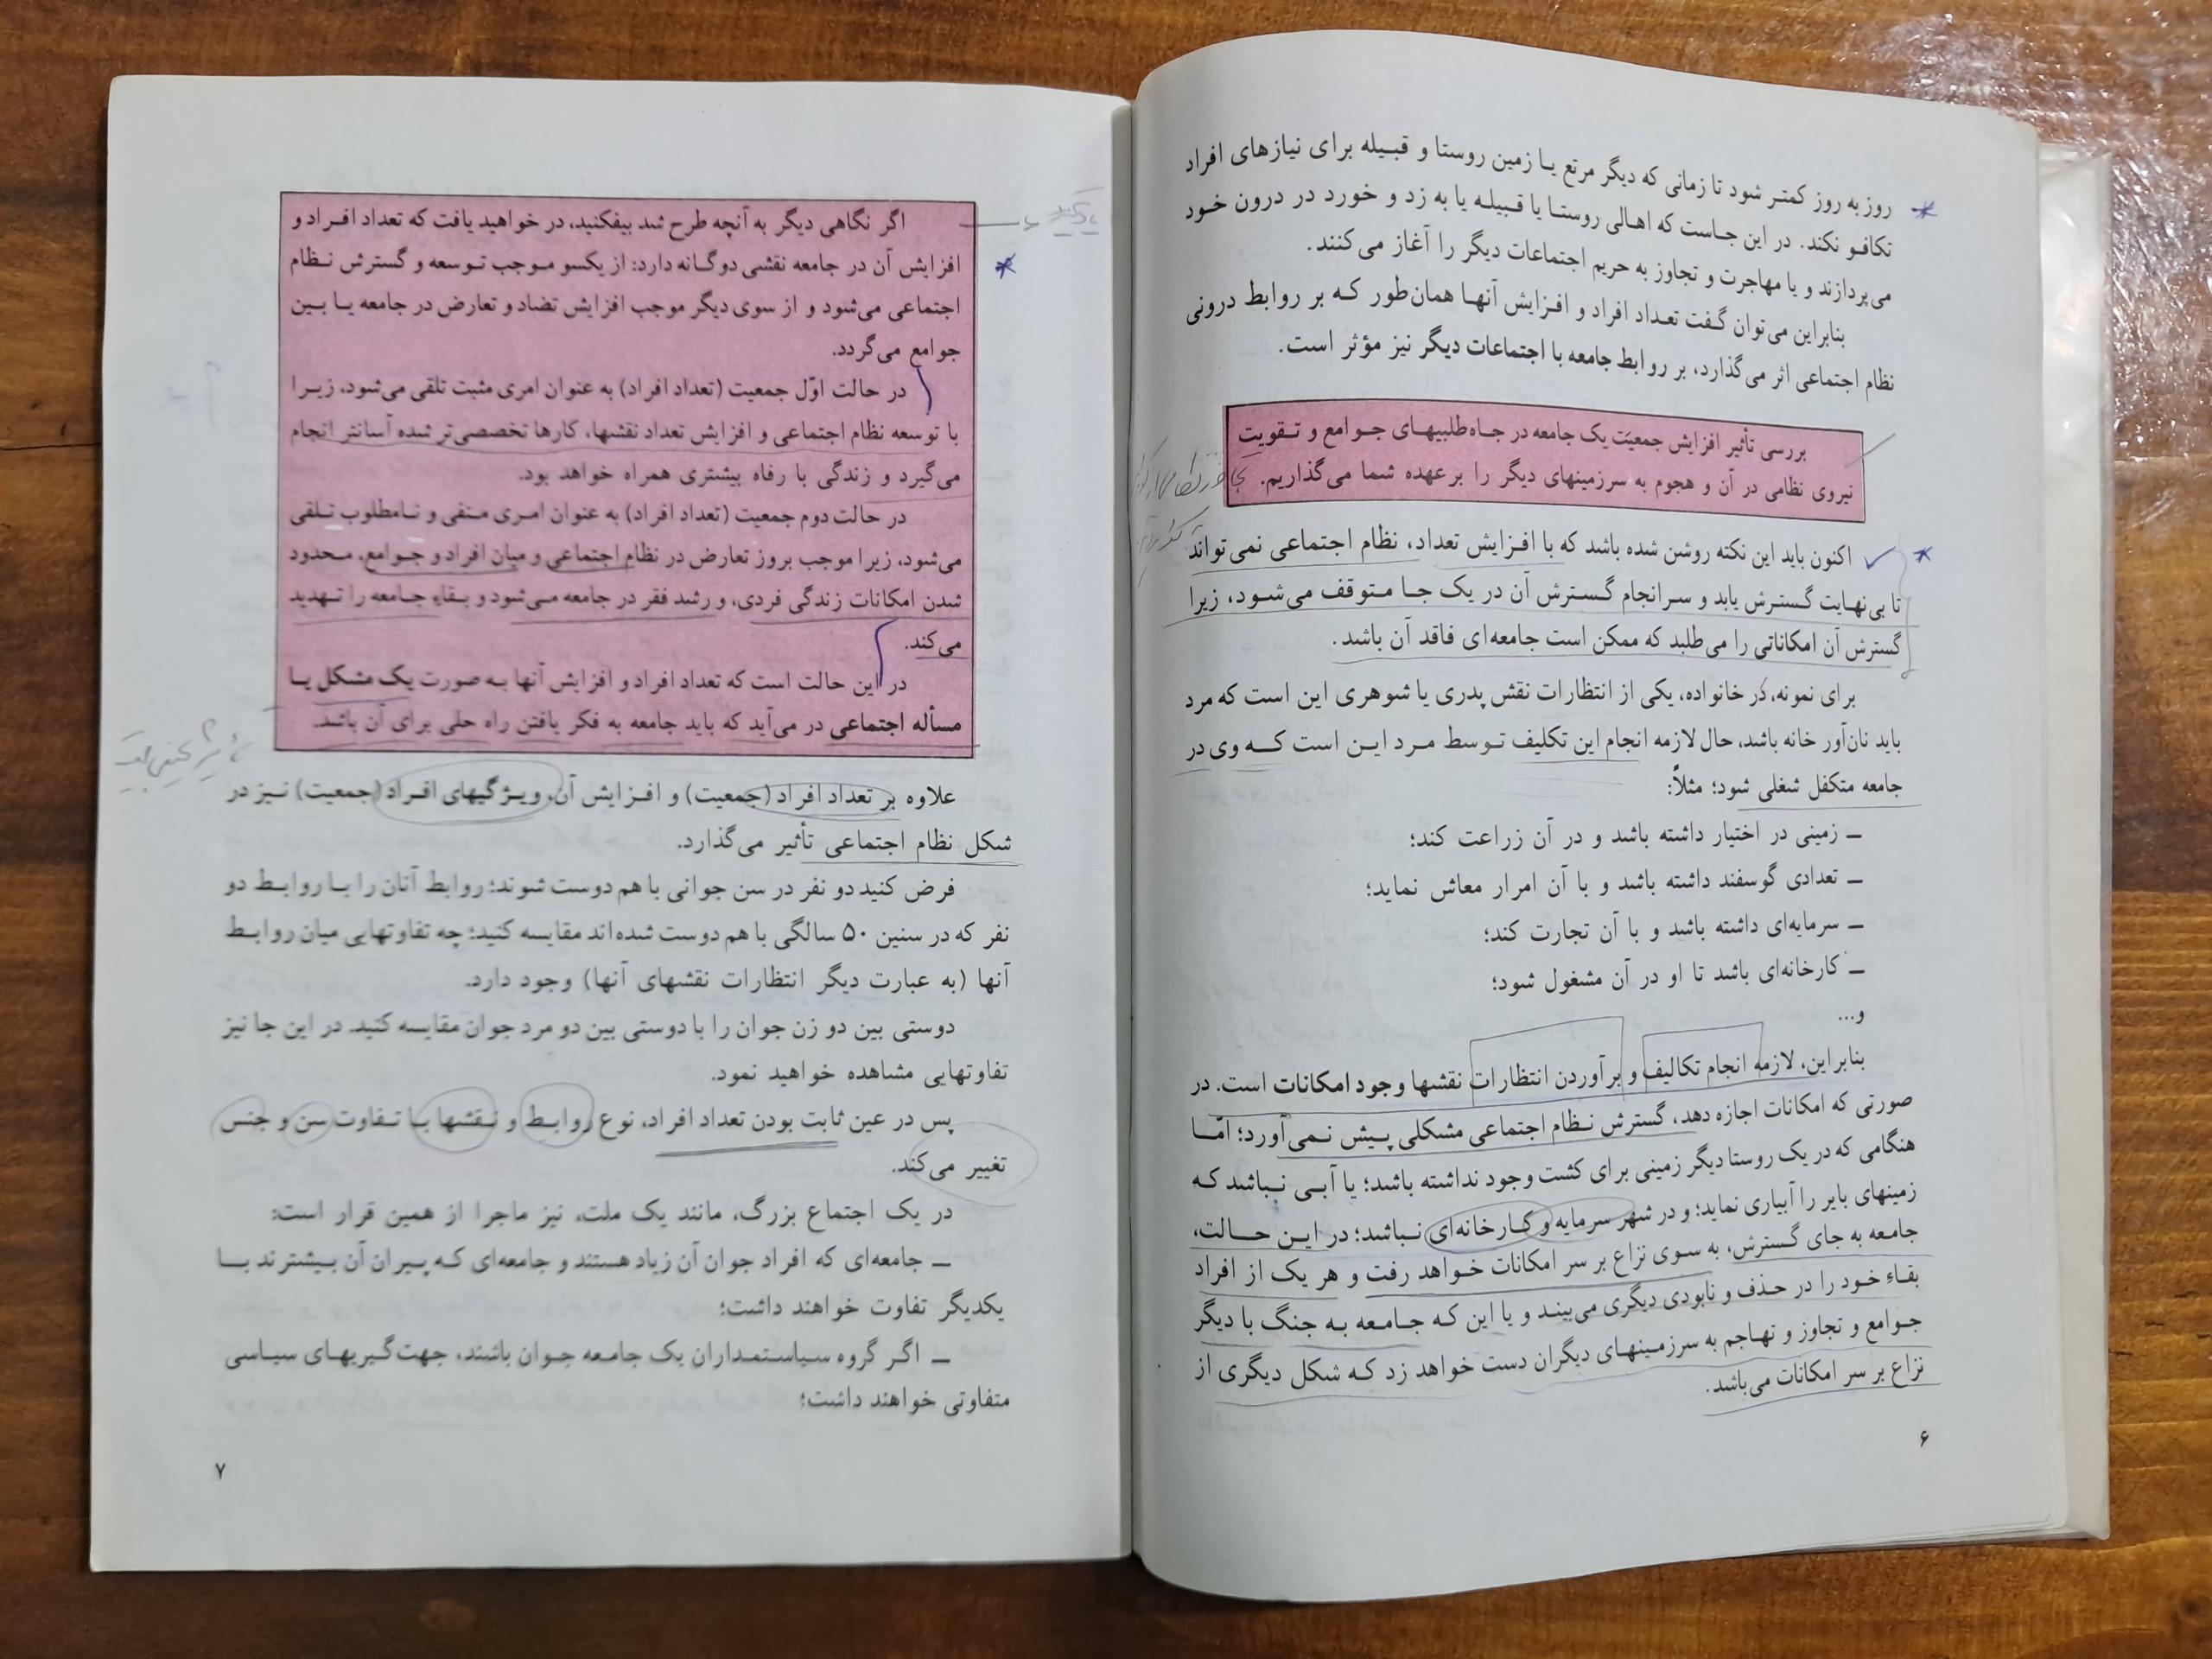 روز به روز کمتر شود تا زمانی که دیگر مرتع یا زمین روستا و قبیله برای نیازهای افراد
تکافو نکند. در این جاست که اهالی روستا یا قبیله یا به زد و خورد در درون خود
می‌پردازند و یا مهاجرت و تجاوز به حریم اجتماعات دیگر را آغاز می‌کنند.
بنابراین می‌توان گفت تعداد افراد و افزایش آنها همان‌طور که بر روابط درونی
نظام اجتماعی اثر می‌گذارد، بر روابط جامعه با اجتماعات دیگر نیز مؤثر است.
بررسی تأثیر افزایش جمعیّت یک جامعه در جاه‌طلبیهای جوامع و تقویت
نیروی نظامی در آن و هجوم به سرزمینهای دیگر را بر عهده شما می‌گذاریم.
اکنون باید این نکته روشن شده باشد که با افزایش تعداد، نظام اجتماعی نمی‌تواند
تا بی‌نهایت گسترش یابد و سرانجام گسترش آن در یک جا متوقف می‌شود، زیرا
گسترش آن امکاناتی را می‌طلبد که ممکن است جامعه‌ای فاقد آن باشد.
برای نمونه، در خانواده، یکی از انتظارات نقش پدری یا شوهری این است که مرد
باید نان‌آور خانه باشد، حال لازمه انجام این تکلیف توسط مرد این است که وی در
جامعه متکفل شغلی شود؛ مثلاً:
ـ زمینی در اختیار داشته باشد و در آن زراعت کند؛
ـ تعدادی گوسفند داشته باشد و با آن امرار معاش نماید؛
ـ سرمایه‌ای داشته باشد و با آن تجارت کند؛
ـ کارخانه‌ای باشد تا او در آن مشغول شود؛
و...
بنابراین، لازمه انجام تکالیف و برآوردن انتظارات نقشها وجود امکانات است. در
صورتی که امکانات اجازه دهد، گسترش نظام اجتماعی مشکلی پیش نمی‌آورد؛ امّا
هنگامی که در یک روستا دیگر زمینی برای کشت وجود نداشته باشد؛ یا آبی نباشد که
زمینهای بایر را آبیاری نماید؛ و در شهر سرمایه و کارخانه‌ای نباشد؛ در این حالت،
جامعه به جای گسترش، به سوی نزاع بر سر امکانات خواهد رفت و هر یک از افراد
بقاء خود را در حذف و نابودی دیگری می‌بیند و یا این که جامعه به جنگ با دیگر
جوامع و تجاوز و تهاجم به سرزمینهای دیگران دست خواهد زد که شکل دیگری از
نزاع بر سر امکانات می‌باشد.
۶
اگر نگاهی دیگر به آنچه طرح شد بیفکنید، در خواهید یافت که تعداد افراد و
افزایش آن در جامعه نقشی دوگانه دارد: از یکسو موجب توسعه و گسترش نظام
اجتماعی می‌شود و از سوی دیگر موجب افزایش تضاد و تعارض در جامعه یا بین
جوامع می‌گردد.
در حالت اوّل جمعیت (تعداد افراد) به عنوان امری مثبت تلقی می‌شود، زیرا
با توسعه نظام اجتماعی و افزایش تعداد نقشها، کارها تخصصی‌تر شده آسانتر انجام
می‌گیرد و زندگی با رفاه بیشتری همراه خواهد بود.
در حالت دوم جمعیت (تعداد افراد) به عنوان امری منفی و نامطلوب تلقی
می‌شود، زیرا موجب بروز تعارض در نظام اجتماعی و میان افراد و جوامع، محدود
شدن امکانات زندگی فردی، و رشد فقر در جامعه می‌شود و بقاء جامعه را تهدید
می‌کند.
در این حالت است که تعداد افراد و افزایش آنها به صورت یک مشکل یا
مسأله اجتماعی در می‌آید که باید جامعه به فکر یافتن راه حلی برای آن باشد.
علاوه بر تعداد افراد (جمعیت) و افزایش آن، ویژگیهای افراد (جمعیت) نیز در
شکل نظام اجتماعی تأثیر می‌گذارد.
فرض کنید دو نفر در سن جوانی با هم دوست شوند؛ روابط آنان را با روابط دو
نفر که در سنین ۵۰ سالگی با هم دوست شده‌اند مقایسه کنید؛ چه تفاوتهایی میان روابط
آنها (به عبارت دیگر انتظارات نقشهای آنها) وجود دارد.
دوستی بین دو زن جوان را با دوستی بین دو مرد جوان مقایسه کنید. در این جا نیز
تفاوتهایی مشاهده خواهید نمود.
پس در عین ثابت بودن تعداد افراد، نوع روابط و نقشها با تفاوت سن و جنس
تغییر می‌کند.
در یک اجتماع بزرگ، مانند یک ملت، نیز ماجرا از همین قرار است:
ـ جامعه‌ای که افراد جوان آن زیاد هستند و جامعه‌ای که پیران آن بیشترند با
یکدیگر تفاوت خواهند داشت؛
ـ اگر گروه سیاستمداران یک جامعه جوان باشند، جهت‌گیریهای سیاسی
متفاوتی خواهند داشت؛
۷